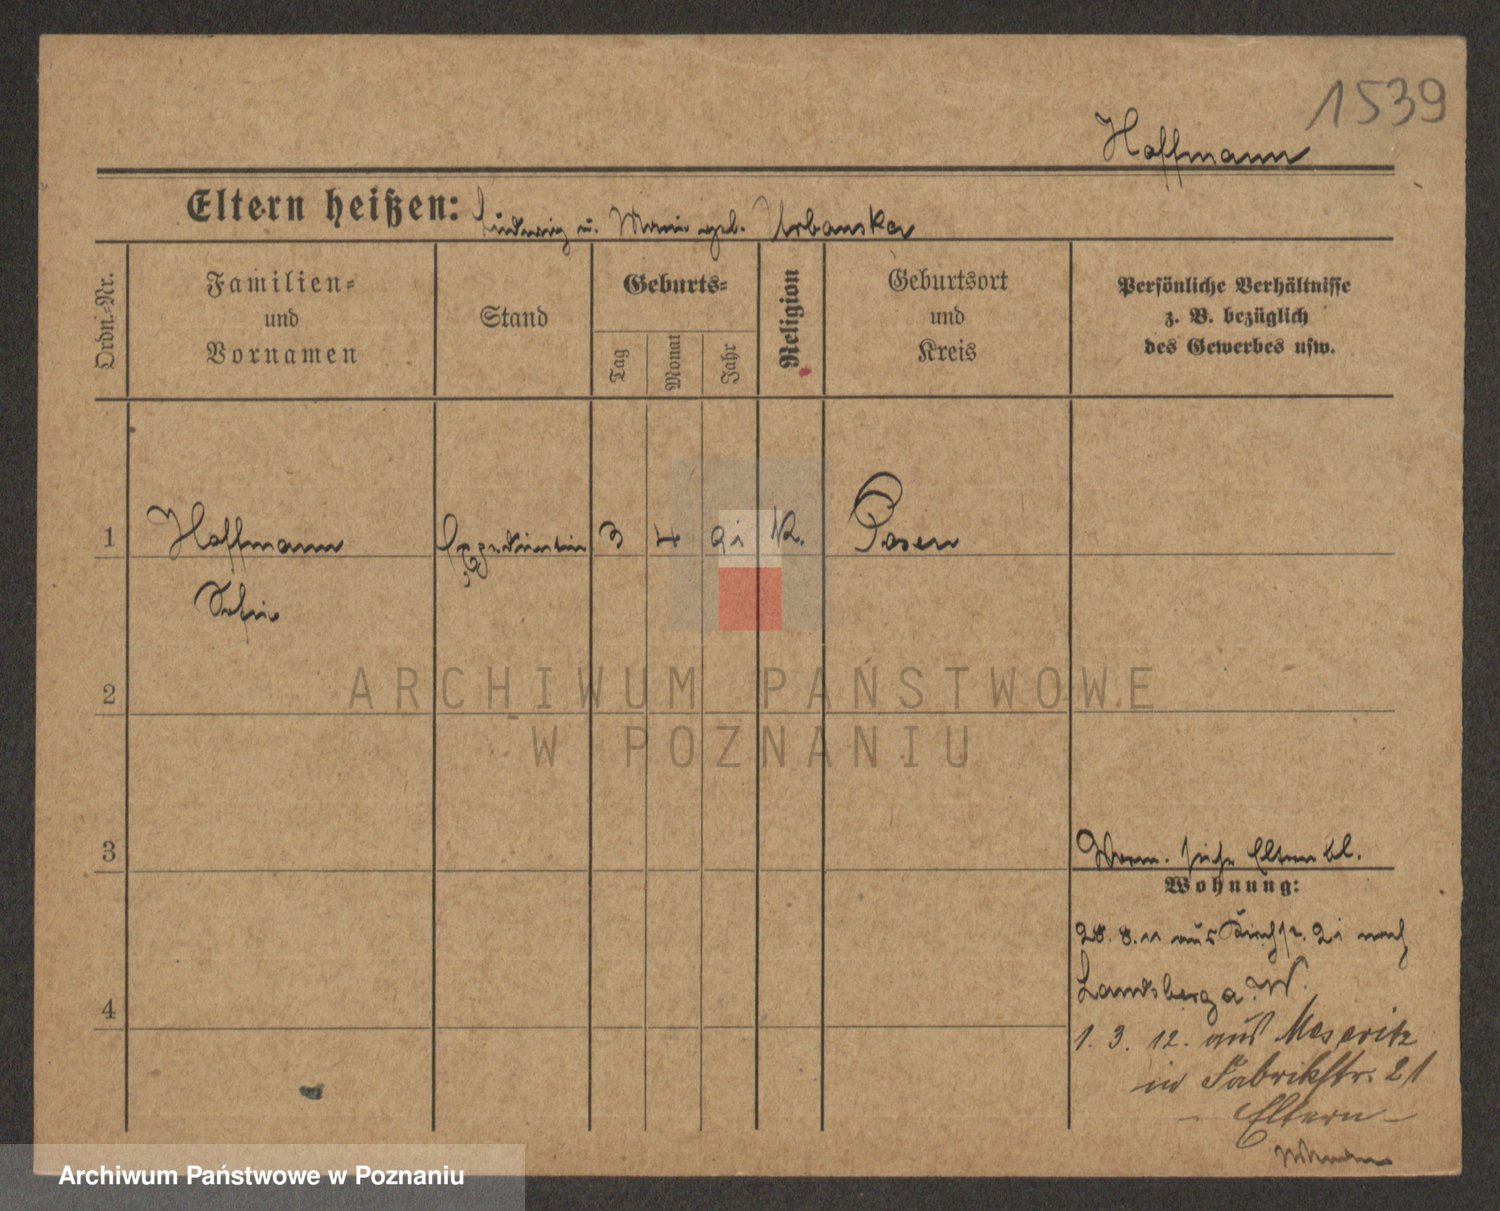 1539
Hoffmann
Eltern heißen: Ludwig u. Marie geb. Urbanska
Ordn.-Nr.
Familien-
und
Vornamen
Stand
Geburts-
Tag
Monat
Jahr
Religion
Geburtsort
und
Kreis
Persönliche Verhältnisse
z. B. bezüglich
des Gewerbes usw.
1 Hoffmann Expedientin 3 4 91 K. Posen
Sofie
ARCHIWUM PAŃSTWOWE
W POZNANIU
2
3
Verm. siehe Eltern bl.
Wohnung:
28. 8. 11 aus Kirchstr. 21 nach
Landsberg a. W.
4
1. 3. 12. aus Meseritz
in Fabrikstr. 21
- Eltern -
Archiwum Państwowe w Poznaniu